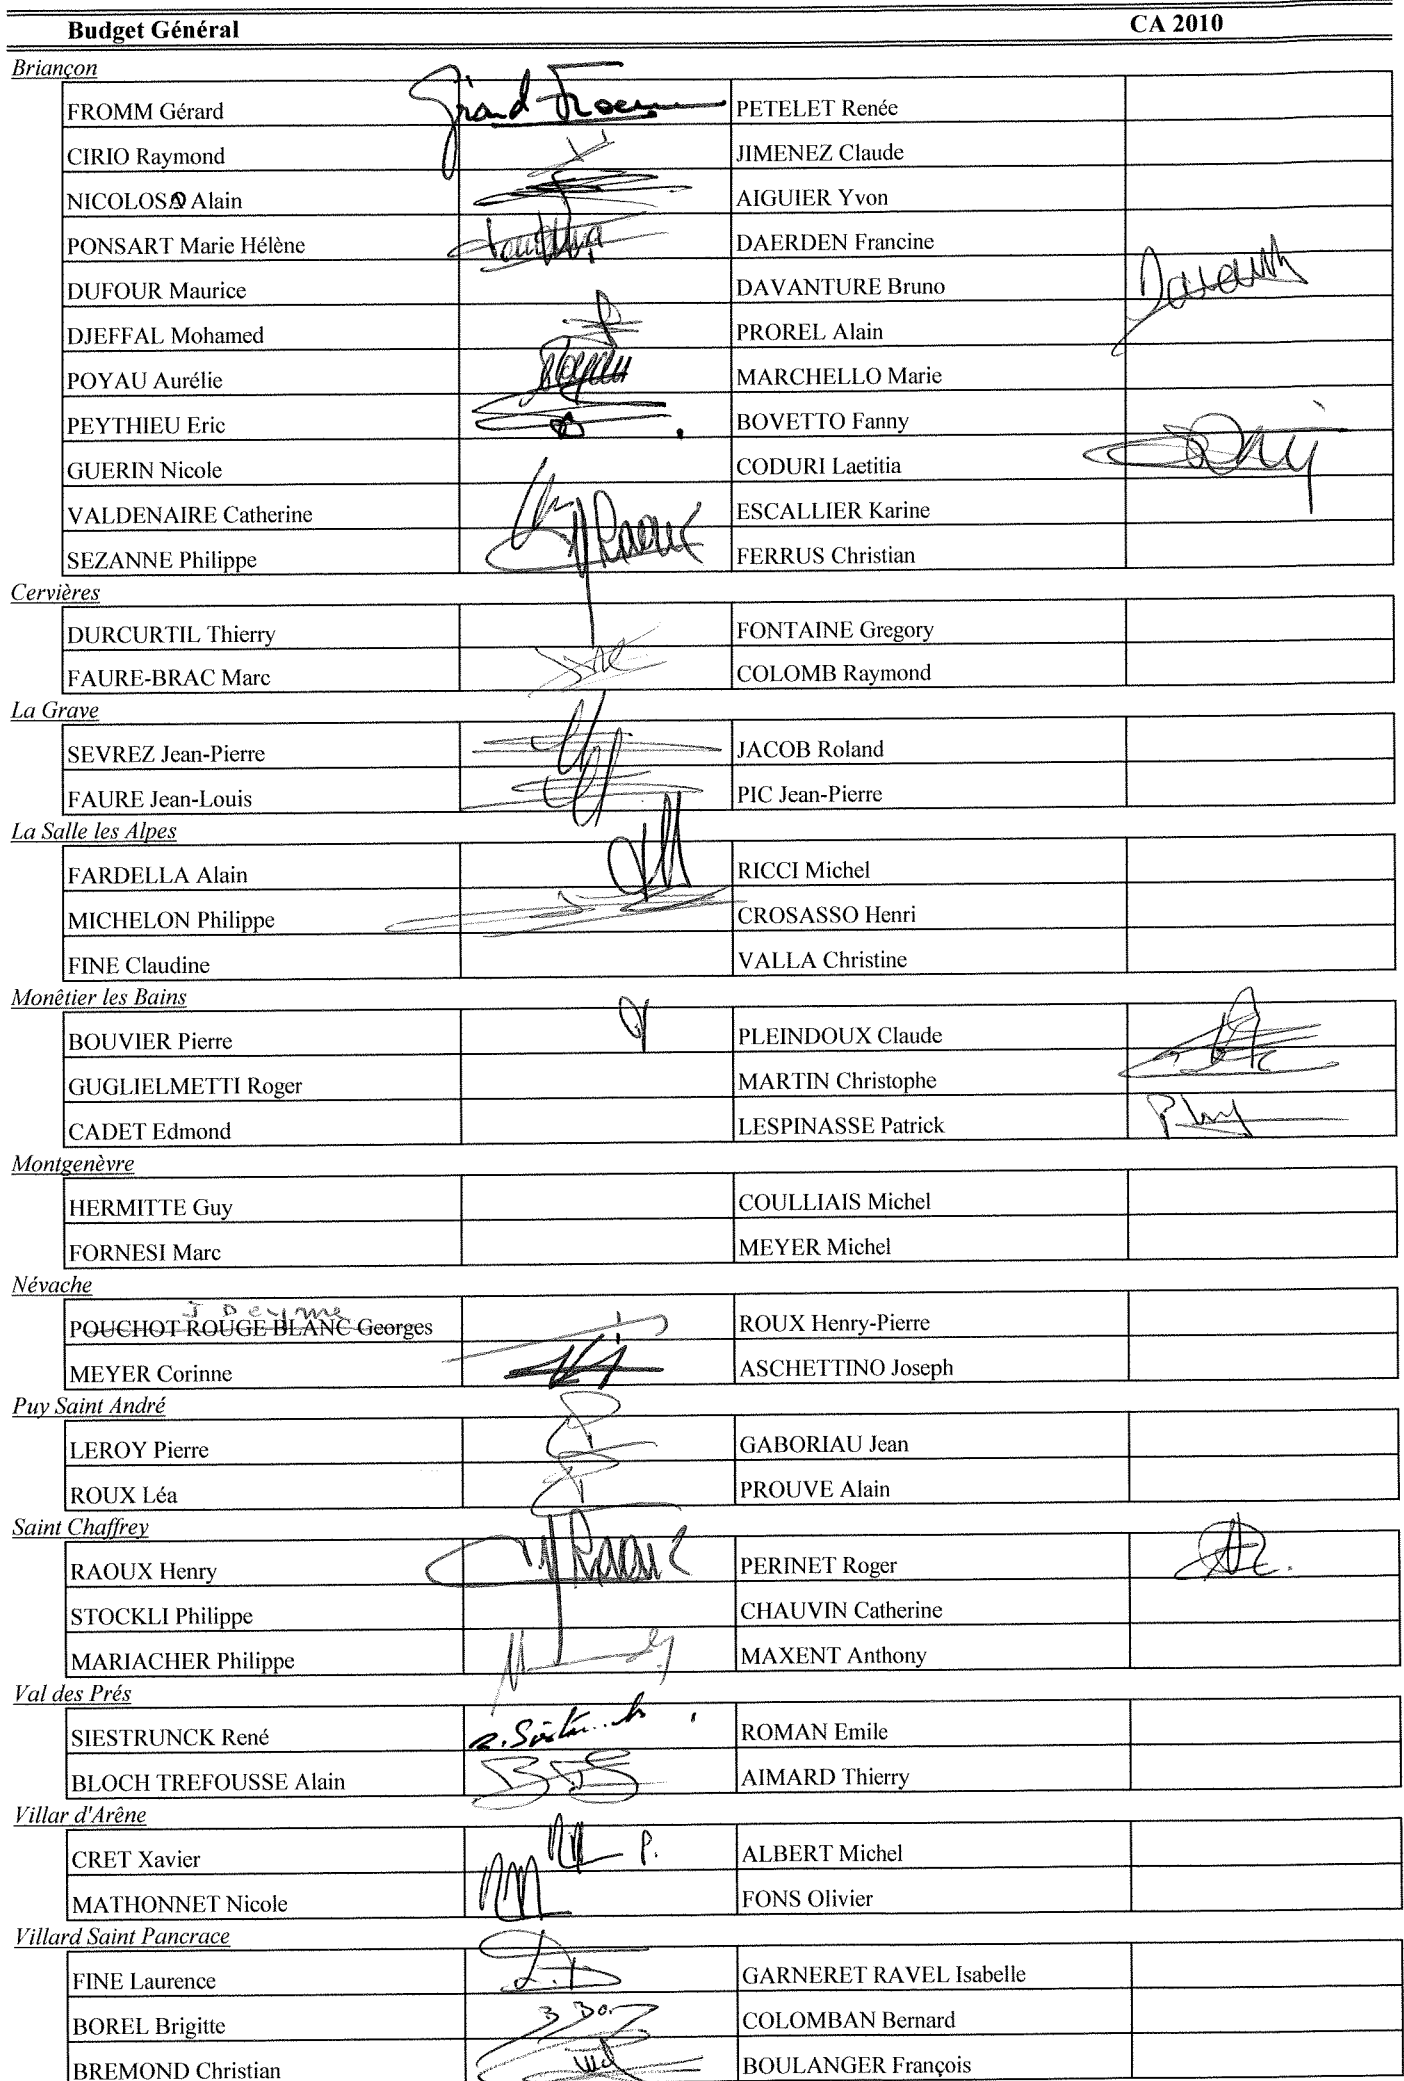 Budget Général CA 2010
Briançon
FROMM Gérard Gérard Fromm PETELET Renée
CIRIO Raymond JIMENEZ Claude
NICOLOSO Alain AIGUIER Yvon
PONSART Marie Hélène DAERDEN Francine
DUFOUR Maurice DAVANTURE Bruno
DJEFFAL Mohamed PROREL Alain
POYAU Aurélie MARCHELLO Marie
PEYTHIEU Eric BOVETTO Fanny
GUERIN Nicole CODURI Laetitia
VALDENAIRE Catherine ESCALLIER Karine
SEZANNE Philippe Raoux FERRUS Christian
Cervières
DURCURTIL Thierry FONTAINE Gregory
FAURE-BRAC Marc COLOMB Raymond
La Grave
SEVREZ Jean-Pierre JACOB Roland
FAURE Jean-Louis PIC Jean-Pierre
La Salle les Alpes
FARDELLA Alain RICCI Michel
MICHELON Philippe CROSASSO Henri
FINE Claudine VALLA Christine
Monêtier les Bains
BOUVIER Pierre PLEINDOUX Claude
GUGLIELMETTI Roger MARTIN Christophe
CADET Edmond LESPINASSE Patrick
Montgenèvre
HERMITTE Guy COULLIAIS Michel
FORNESI Marc MEYER Michel
Névache
J Deyme
POUCHOT ROUGE BLANC Georges ROUX Henry-Pierre
MEYER Corinne ASCHETTINO Joseph
Puy Saint André
LEROY Pierre GABORIAU Jean
ROUX Léa PROUVE Alain
Saint Chaffrey
RAOUX Henry Raoux PERINET Roger
STOCKLI Philippe CHAUVIN Catherine
MARIACHER Philippe MAXENT Anthony
Val des Prés
SIESTRUNCK René ROMAN Emile
BLOCH TREFOUSSE Alain AIMARD Thierry
Villar d'Arêne
CRET Xavier P. ALBERT Michel
MATHONNET Nicole FONS Olivier
Villard Saint Pancrace
FINE Laurence GARNERET RAVEL Isabelle
BOREL Brigitte COLOMBAN Bernard
BREMOND Christian BOULANGER François